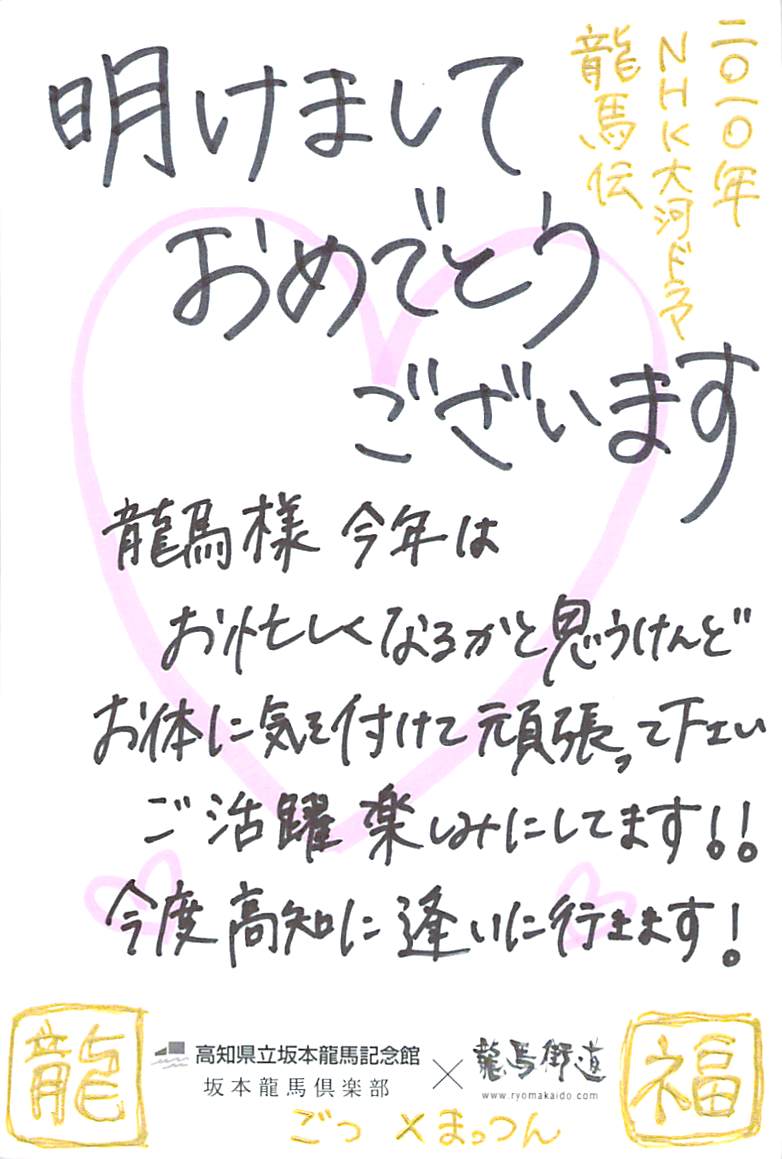 二〇一〇年
NHK大河ドラマ
龍馬伝
明けまして
おめでとう
ございます
龍馬様 今年は
お忙しくなるかと思うけんど
お体に気を付けて頑張って下さい
ご活躍楽しみにしてます!!
今度高知に逢いに行きます!
龍
高知県立坂本龍馬記念館
坂本龍馬倶楽部
×
龍馬街道
www.ryomakaido.com
福
ごっ×まっつん